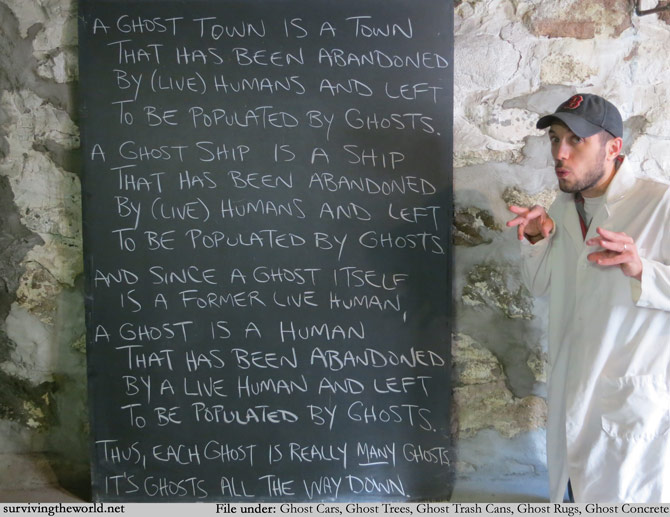 A GHOST TOWN IS A TOWN
THAT HAS BEEN ABANDONED
BY (LIVE) HUMANS AND LEFT
TO BE POPULATED BY GHOSTS.
A GHOST SHIP IS A SHIP
THAT HAS BEEN ABANDONED
BY (LIVE) HUMANS AND LEFT
TO BE POPULATED BY GHOSTS
AND SINCE A GHOST ITSELF
IS A FORMER LIVE HUMAN,
A GHOST IS A HUMAN
THAT HAS BEEN ABANDONED
BY A LIVE HUMAN AND LEFT
TO BE POPULATED BY GHOSTS.
THUS, EACH GHOST IS REALLY MANY GHOSTS
IT'S GHOSTS ALL THE WAY DOWN.
B
survivingtheworld.net
File under: Ghost Cars, Ghost Trees, Ghost Trash Cans, Ghost Rugs, Ghost Concrete